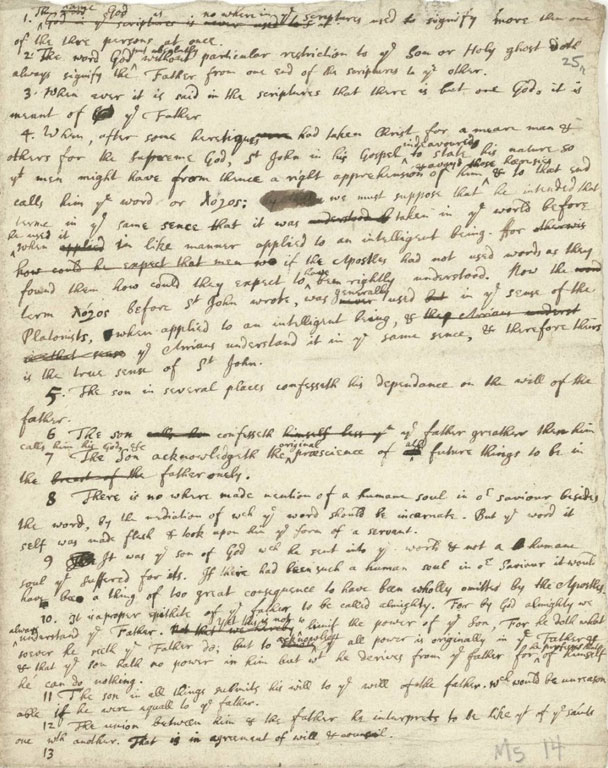 1. The name God is no where in ye scriptures used to signify more then one
of the thre persons at once.
2 The word God put absolutely without particular restriction to ye Son or Holy ghost doth
always signify the Father from one end of the scriptures to ye other.
3. When ever it is said in the scriptures that there is but one God, it is
meant of ye Father
4. When, after some heretiques had taken Christ for a meare man &
others for the supreme God, St John in his Gospel indeavoured to state his nature so
yt men might have from thence a right apprehension of him & avoyd those hæresies & to that end
calls him ye word or λογος: we must suppose that he intended that
terme in ye same sence that it was taken in ye world before
he used it when in like manner applied to an intelligent being. For otherwise
if the Apostles had not used words as they
found them how could they expect to have been rightly understood. Now the
term λογος before St John wrote, was generally used in ye sense of the
Platonists, when applied to an intelligent being, &
ye Arrians understand it in ye same sence, & therefore theirs
is the true sense of St John.
5. The son in several places confesseth his dependance on the will of the
father.
6 The son confesseth ye father greather then him
calls him his God, etc
7 The Son acknowledgeth the original præscience of all future things to be in
the father onely.
8 There is no where made mention of a humane soul in or saviour besides
the word, by the mediation of wch ye word should be incarnate. But ye word it
self was made flesh & took upon him ye form of a servant.
9 It was ye son of God wch he sent into ye world & not a humane
soul yt suffered for us. If there had been such a human soul in or Saviour it would
have been a thing of too great consequence to have been wholly omitted by the Apostles.
10. It is a proper epithite of ye father to be called almighty. For by God almighty we
always understand ye Father. Yet this is not to limit the power of ye Son, For he doth what
soever he seeth ye Father do; but to acknowledge yt all power is originally in ye Father &
& that ye son hath no power in him but wt he derives from ye father for he professes that of himself
he can do nothing.
11 The son in all things submits his will to ye will of the father. wch would be unreason
able if he were equall to ye father.
12 The union between him & the father he interprets to be like yt of ye saints
one wth another. That is in agreement of will & counsil.
13
25
Ms 14